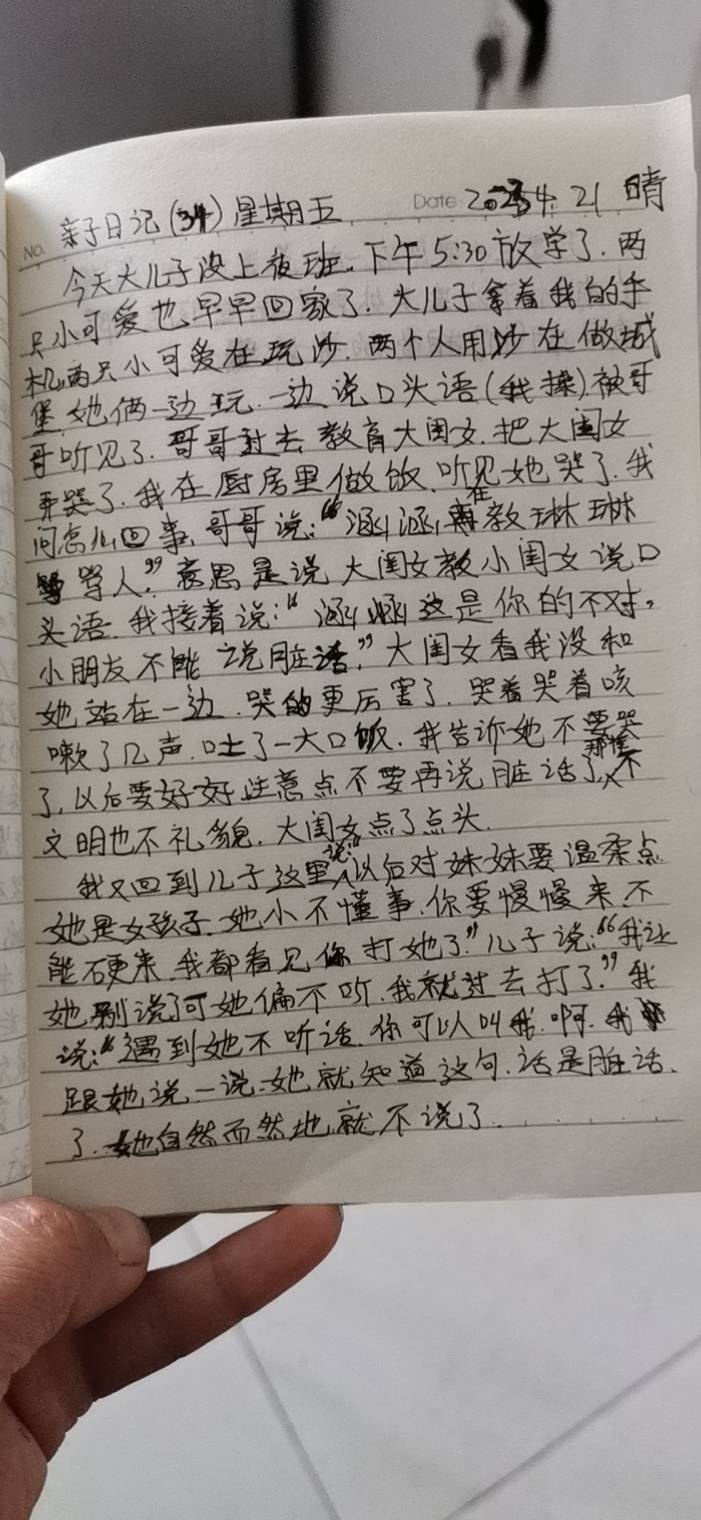 No. 亲子日记(34) 星期五 Date 2023 4. 21 晴
今天大儿子没上夜班.下午5:30放学了.两
只小可爱也早早回家了.大儿子拿着我的手
机.两只小可爱在玩沙.两个人用沙在做城
堡.她俩一边玩.一边说口头语(我操).被哥
哥听见了.哥哥过去教育大闺女.把大闺女
弄哭了.我在厨房里做饭.听见她哭了.我
问怎么回事.哥哥说:“涵涵在教琳琳
骂人.”意思是说大闺女教小闺女说口
头语.我接着说:“涵涵这是你的不对,
小朋友不能说脏话.”大闺女看我没和
她站在一边.哭的更厉害了.哭着哭着咳
嗽了几声.吐了一大口饭.我告诉她不要哭
了,以后要好好注意点不要再说脏话了,那样不
文明也不礼貌.大闺女点了点头.
我又回到儿子这里说:“以后对妹妹要温柔点
她是女孩子.她小不懂事.你要慢慢来.不
能硬来.我都看见你打她了.”儿子说:“我让
她别说了可她偏不听.我就过去打了.”我
说:“遇到她不听话.你可以叫我.啊.我
跟她说一说.她就知道这句.话是脏话.
了.她自然而然地就不说了.